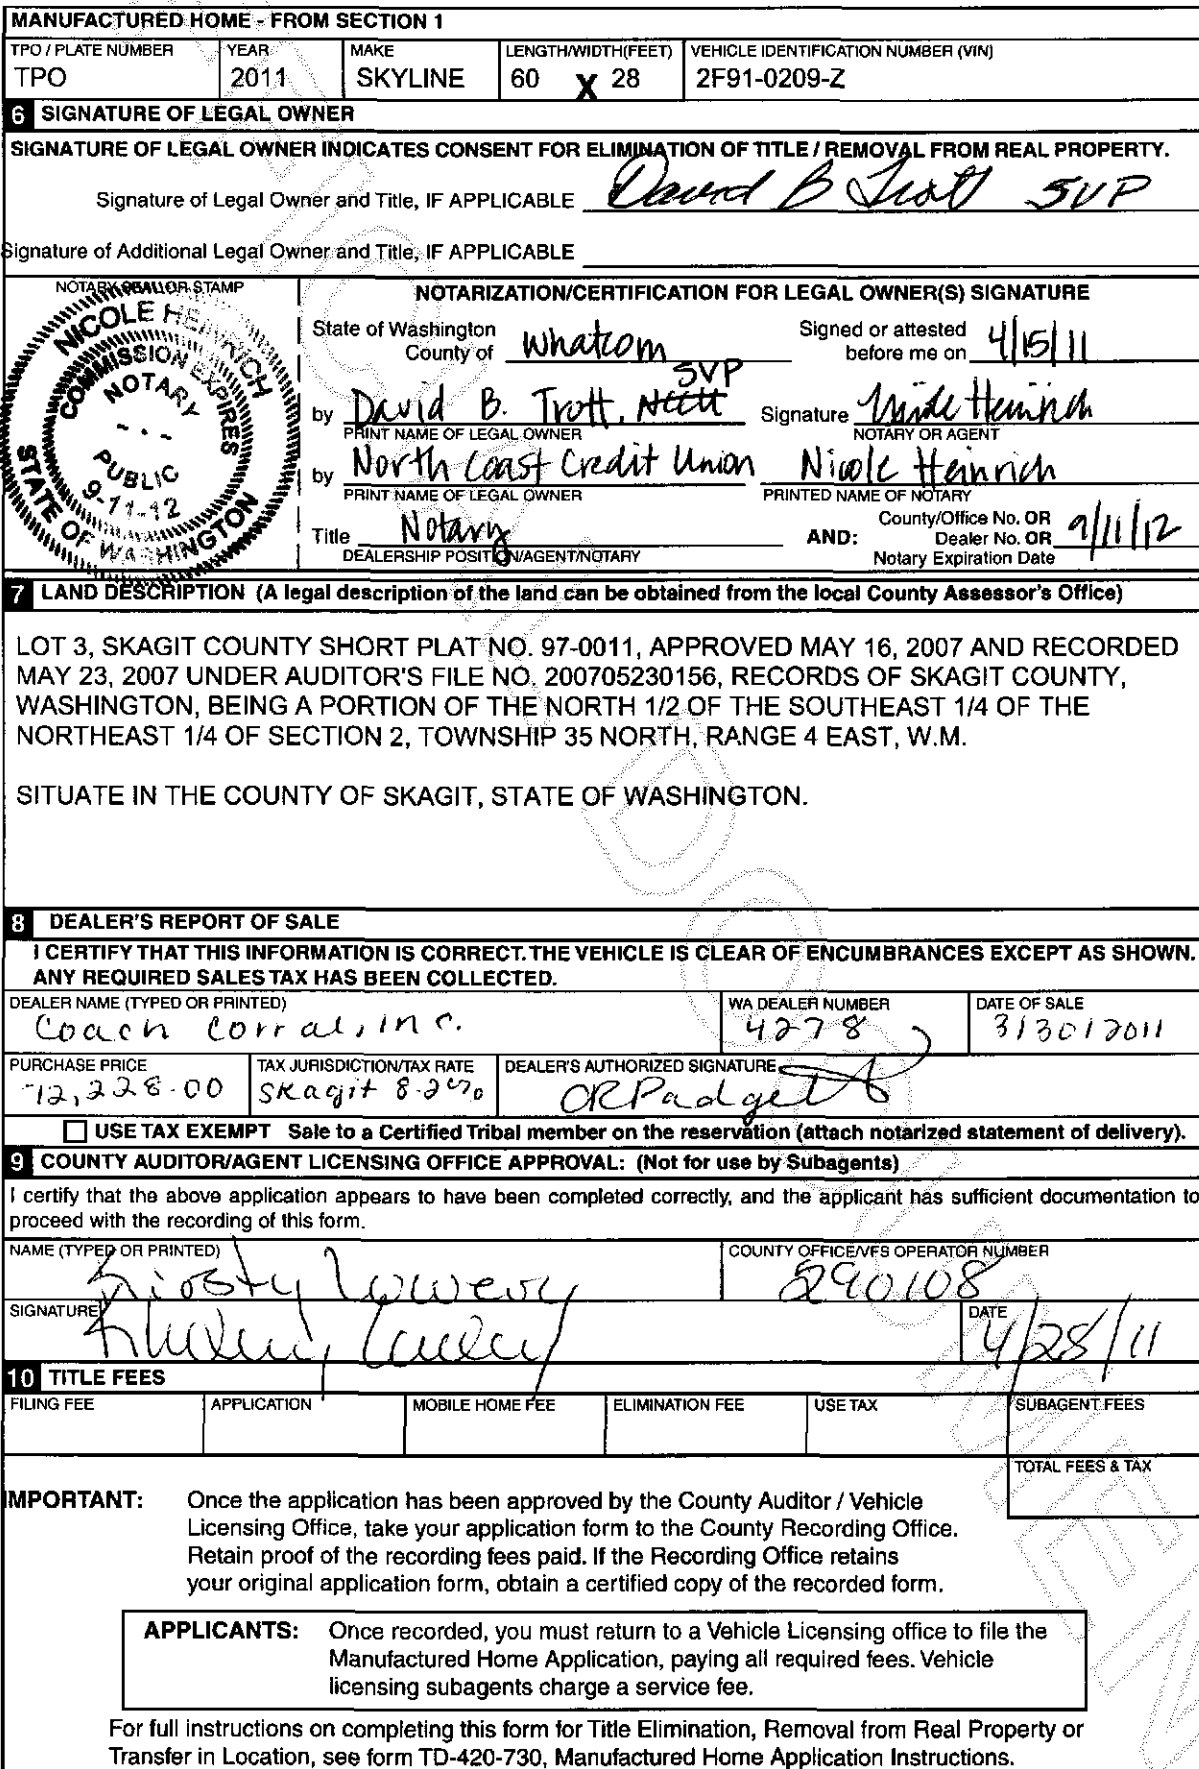 MANUFACTURED HOME - FROM SECTION 1
TPO / PLATE NUMBER YEAR MAKE LENGTH/WIDTH(FEET) VEHICLE IDENTIFICATION NUMBER (VIN)
TPO 2011 SKYLINE 60 X 28 2F91-0209-Z
6 SIGNATURE OF LEGAL OWNER
SIGNATURE OF LEGAL OWNER INDICATES CONSENT FOR ELIMINATION OF TITLE / REMOVAL FROM REAL PROPERTY.
Signature of Legal Owner and Title, IF APPLICABLE David B Trott SVP
Signature of Additional Legal Owner and Title, IF APPLICABLE
NOTARY SEAL OR STAMP
NICOLE HEINRICH
COMMISSION EXPIRES
NOTARY
PUBLIC
9-11-12
STATE OF WASHINGTON
NOTARIZATION/CERTIFICATION FOR LEGAL OWNER(S) SIGNATURE
State of Washington Signed or attested
County of Whatcom before me on 4/15/11
SVP
by David B. Trott, Signature Nicole Heinrich
PRINT NAME OF LEGAL OWNER NOTARY OR AGENT
by North Coast Credit Union Nicole Heinrich
PRINT NAME OF LEGAL OWNER PRINTED NAME OF NOTARY
Title Notary AND: County/Office No. OR
Dealer No. OR 9/11/12
DEALERSHIP POSITION/AGENT/NOTARY Notary Expiration Date
7 LAND DESCRIPTION (A legal description of the land can be obtained from the local County Assessor's Office)
LOT 3, SKAGIT COUNTY SHORT PLAT NO. 97-0011, APPROVED MAY 16, 2007 AND RECORDED
MAY 23, 2007 UNDER AUDITOR'S FILE NO. 200705230156, RECORDS OF SKAGIT COUNTY,
WASHINGTON, BEING A PORTION OF THE NORTH 1/2 OF THE SOUTHEAST 1/4 OF THE
NORTHEAST 1/4 OF SECTION 2, TOWNSHIP 35 NORTH, RANGE 4 EAST, W.M.
SITUATE IN THE COUNTY OF SKAGIT, STATE OF WASHINGTON.
8 DEALER'S REPORT OF SALE
I CERTIFY THAT THIS INFORMATION IS CORRECT. THE VEHICLE IS CLEAR OF ENCUMBRANCES EXCEPT AS SHOWN.
ANY REQUIRED SALES TAX HAS BEEN COLLECTED.
DEALER NAME (TYPED OR PRINTED) WA DEALER NUMBER DATE OF SALE
Coach Corral, Inc. 4278 3/30/2011
PURCHASE PRICE TAX JURISDICTION/TAX RATE DEALER'S AUTHORIZED SIGNATURE
Skagit 8.2% CR Padgett
USE TAX EXEMPT Sale to a Certified Tribal member on the reservation (attach notarized statement of delivery).
9 COUNTY AUDITOR/AGENT LICENSING OFFICE APPROVAL: (Not for use by Subagents)
I certify that the above application appears to have been completed correctly, and the applicant has sufficient documentation to
proceed with the recording of this form.
NAME (TYPED OR PRINTED) COUNTY OFFICE/VFS OPERATOR NUMBER
290108
SIGNATURE DATE
4/28/11
10 TITLE FEES
FILING FEE APPLICATION MOBILE HOME FEE ELIMINATION FEE USE TAX SUBAGENT FEES
TOTAL FEES & TAX
IMPORTANT: Once the application has been approved by the County Auditor / Vehicle
Licensing Office, take your application form to the County Recording Office.
Retain proof of the recording fees paid. If the Recording Office retains
your original application form, obtain a certified copy of the recorded form.
APPLICANTS: Once recorded, you must return to a Vehicle Licensing office to file the
Manufactured Home Application, paying all required fees. Vehicle
licensing subagents charge a service fee.
For full instructions on completing this form for Title Elimination, Removal from Real Property or
Transfer in Location, see form TD-420-730, Manufactured Home Application Instructions.